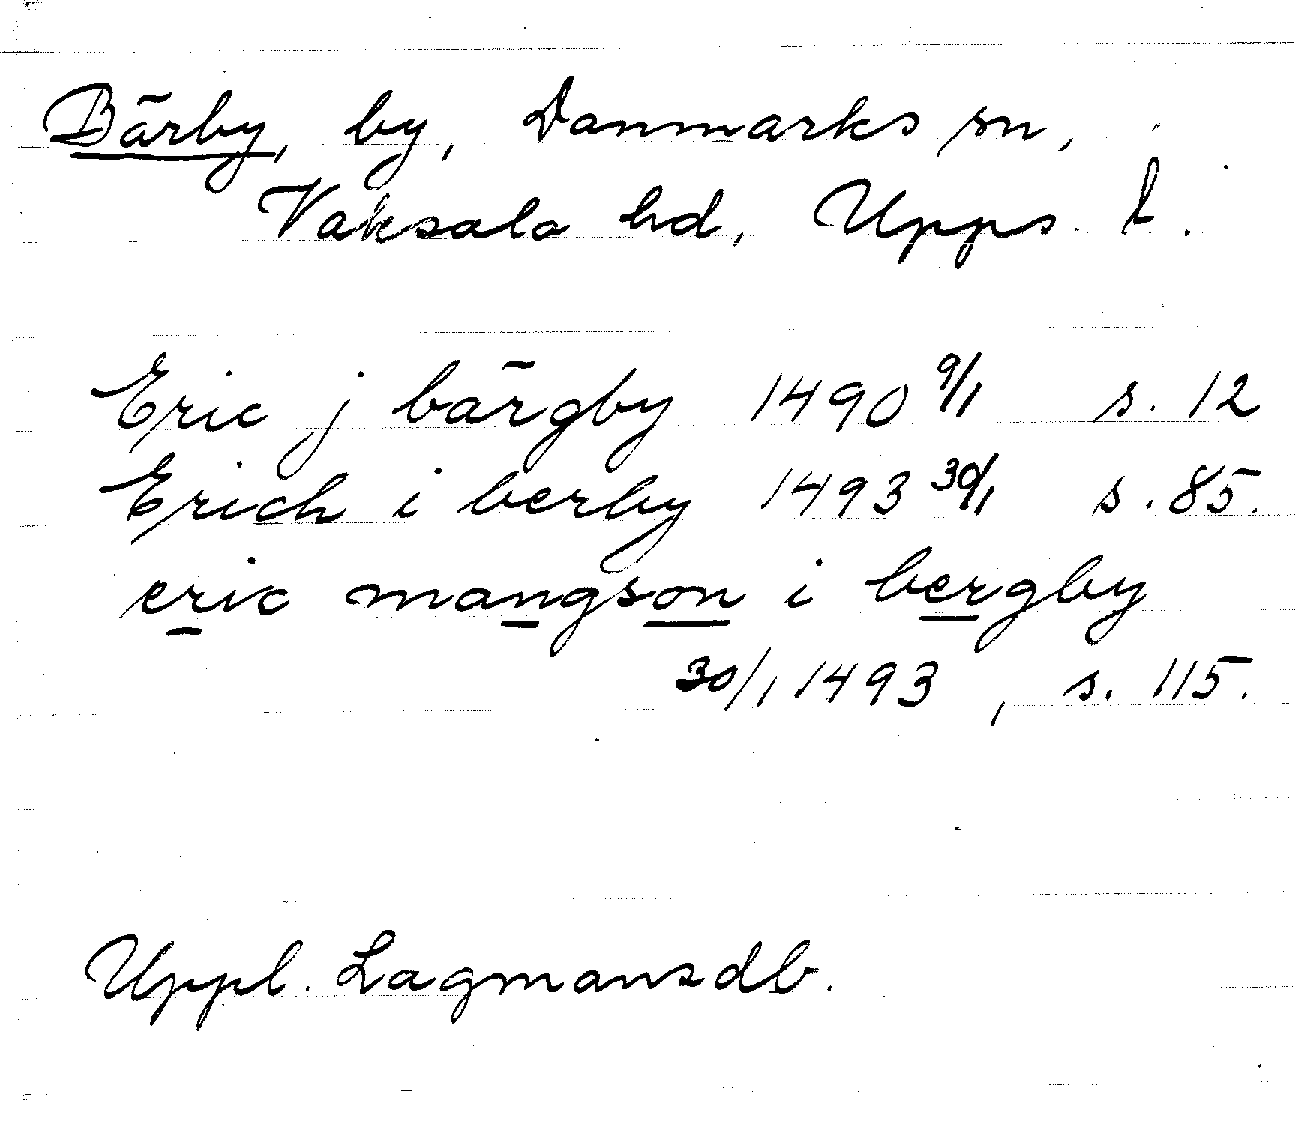 Bärby, by, Danmarks sn,
Vaksala hd, Upps. l.
Eric j bärgby 1490 9/1 s. 12
Erich i berby 1493 30/1 s. 85.
eric mangson i bergby
30/1 1493, s. 115.
Uppl. Lagmansdb.